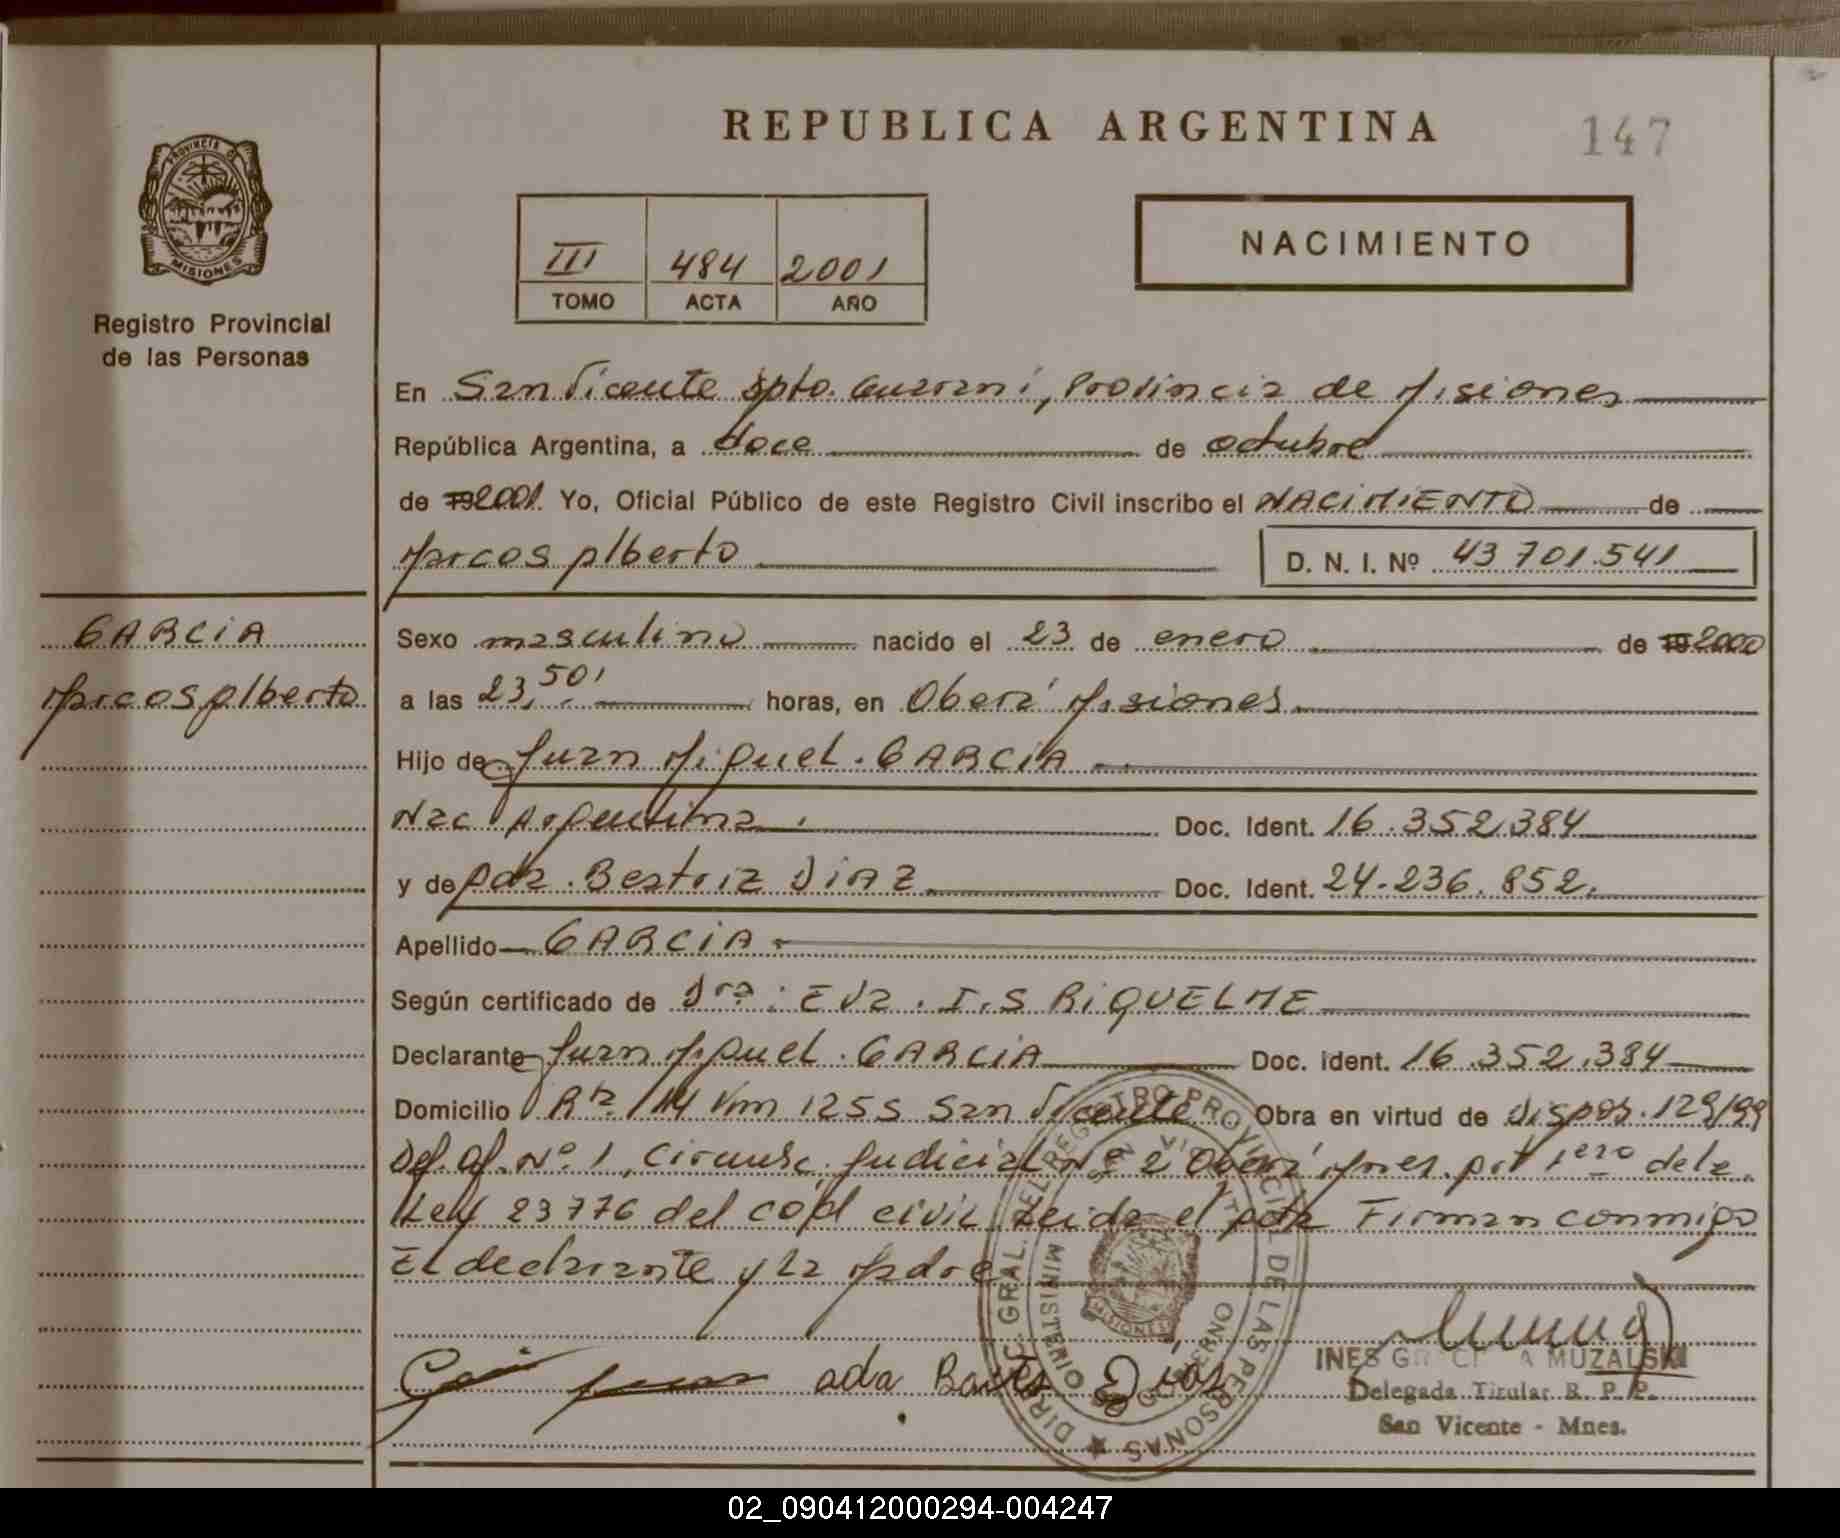 REPUBLICA ARGENTINA
147
PROVINCIA DE
MISIONES
Registro Provincial
de las Personas
III 484 2001
TOMO ACTA AÑO
NACIMIENTO
En San Vicente Dpto. Guarani, Provincia de Misiones
República Argentina, a doce de octubre
de 19 2001. Yo, Oficial Público de este Registro Civil inscribo el NACIMIENTO de
Marcos Alberto D. N. I. Nº 43 701.541
GARCIA
Marcos Alberto
Sexo masculino nacido el 23 de enero de 19 2000
a las 23,50' horas, en Oberá Misiones.
Hijo de Juan Miguel. GARCIA
Nac Argentina. Doc. Ident. 16.352.384
y de Ada. Beatriz DIAZ. Doc. Ident. 24.236.852.
Apellido GARCIA.
Según certificado de Dra: Eva. I.S RIQUELME
Declarante Juan Miguel. GARCIA Doc. Ident. 16.352.384
Domicilio Rta. 14 Km 1255 San Vicente Obra en virtud de Dispos. 129/99
Def. Of. Nº. 1, Circunsc. Judicial Nº 2 Oberá Mnes. Art 1ero de la
Ley 23776 del cod civil. Leida el Acta Firman conmigo
El declarante y la Madre
Garcia Juan ada Diaz
DIR. GRAL. DEL REGISTRO PROVINCIAL DE LAS PERSONAS
MINISTERIO DE GOBIERNO
SAN VICENTE
MISIONES
INES MUZALSKI
Delegada Titular R. P. P.
San Vicente - Mnes.
02_090412000294-004247